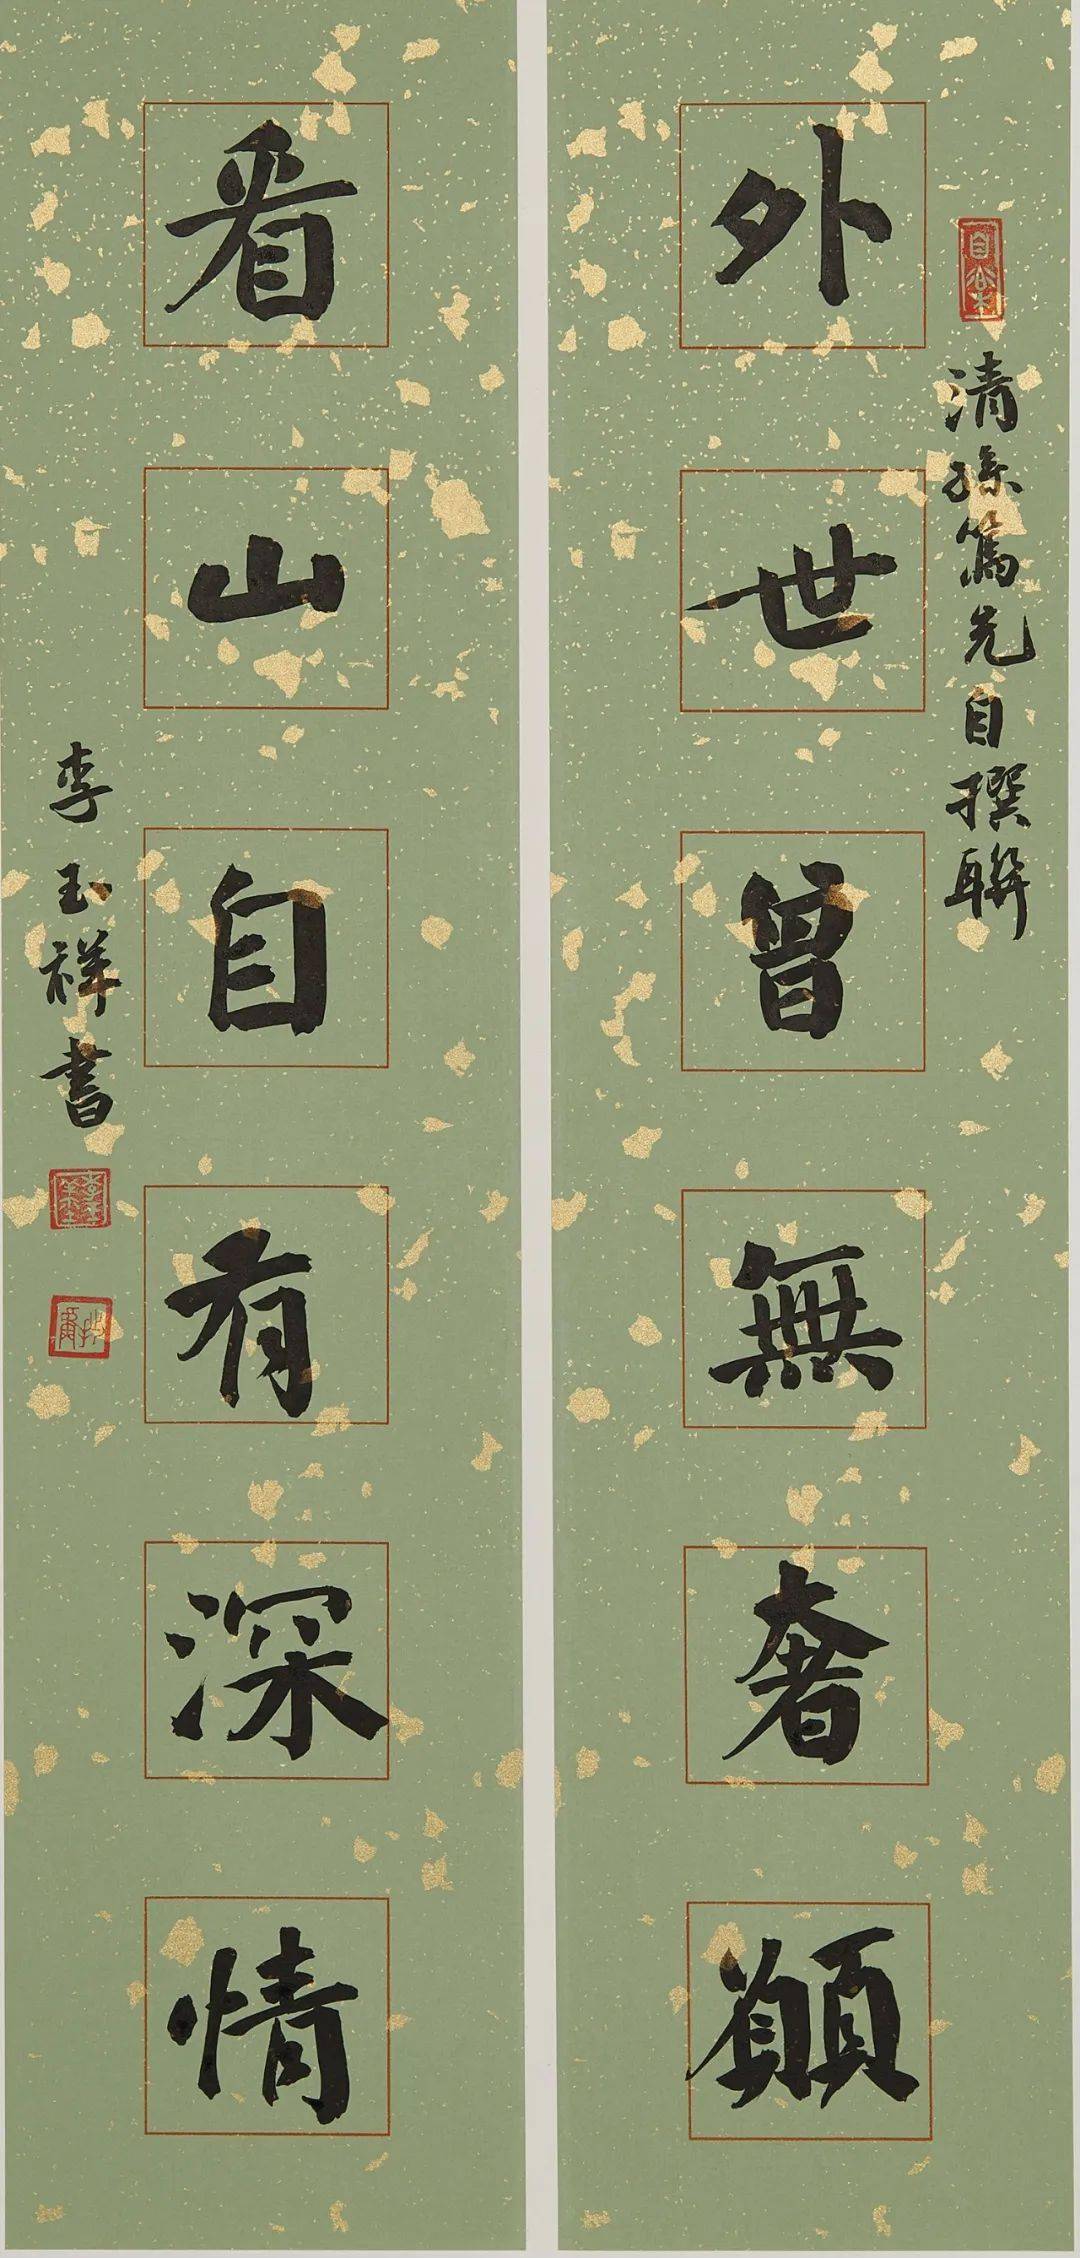 清孫篤先自撰聯
外世曾無奢願
看山自有深情
李玉祥書